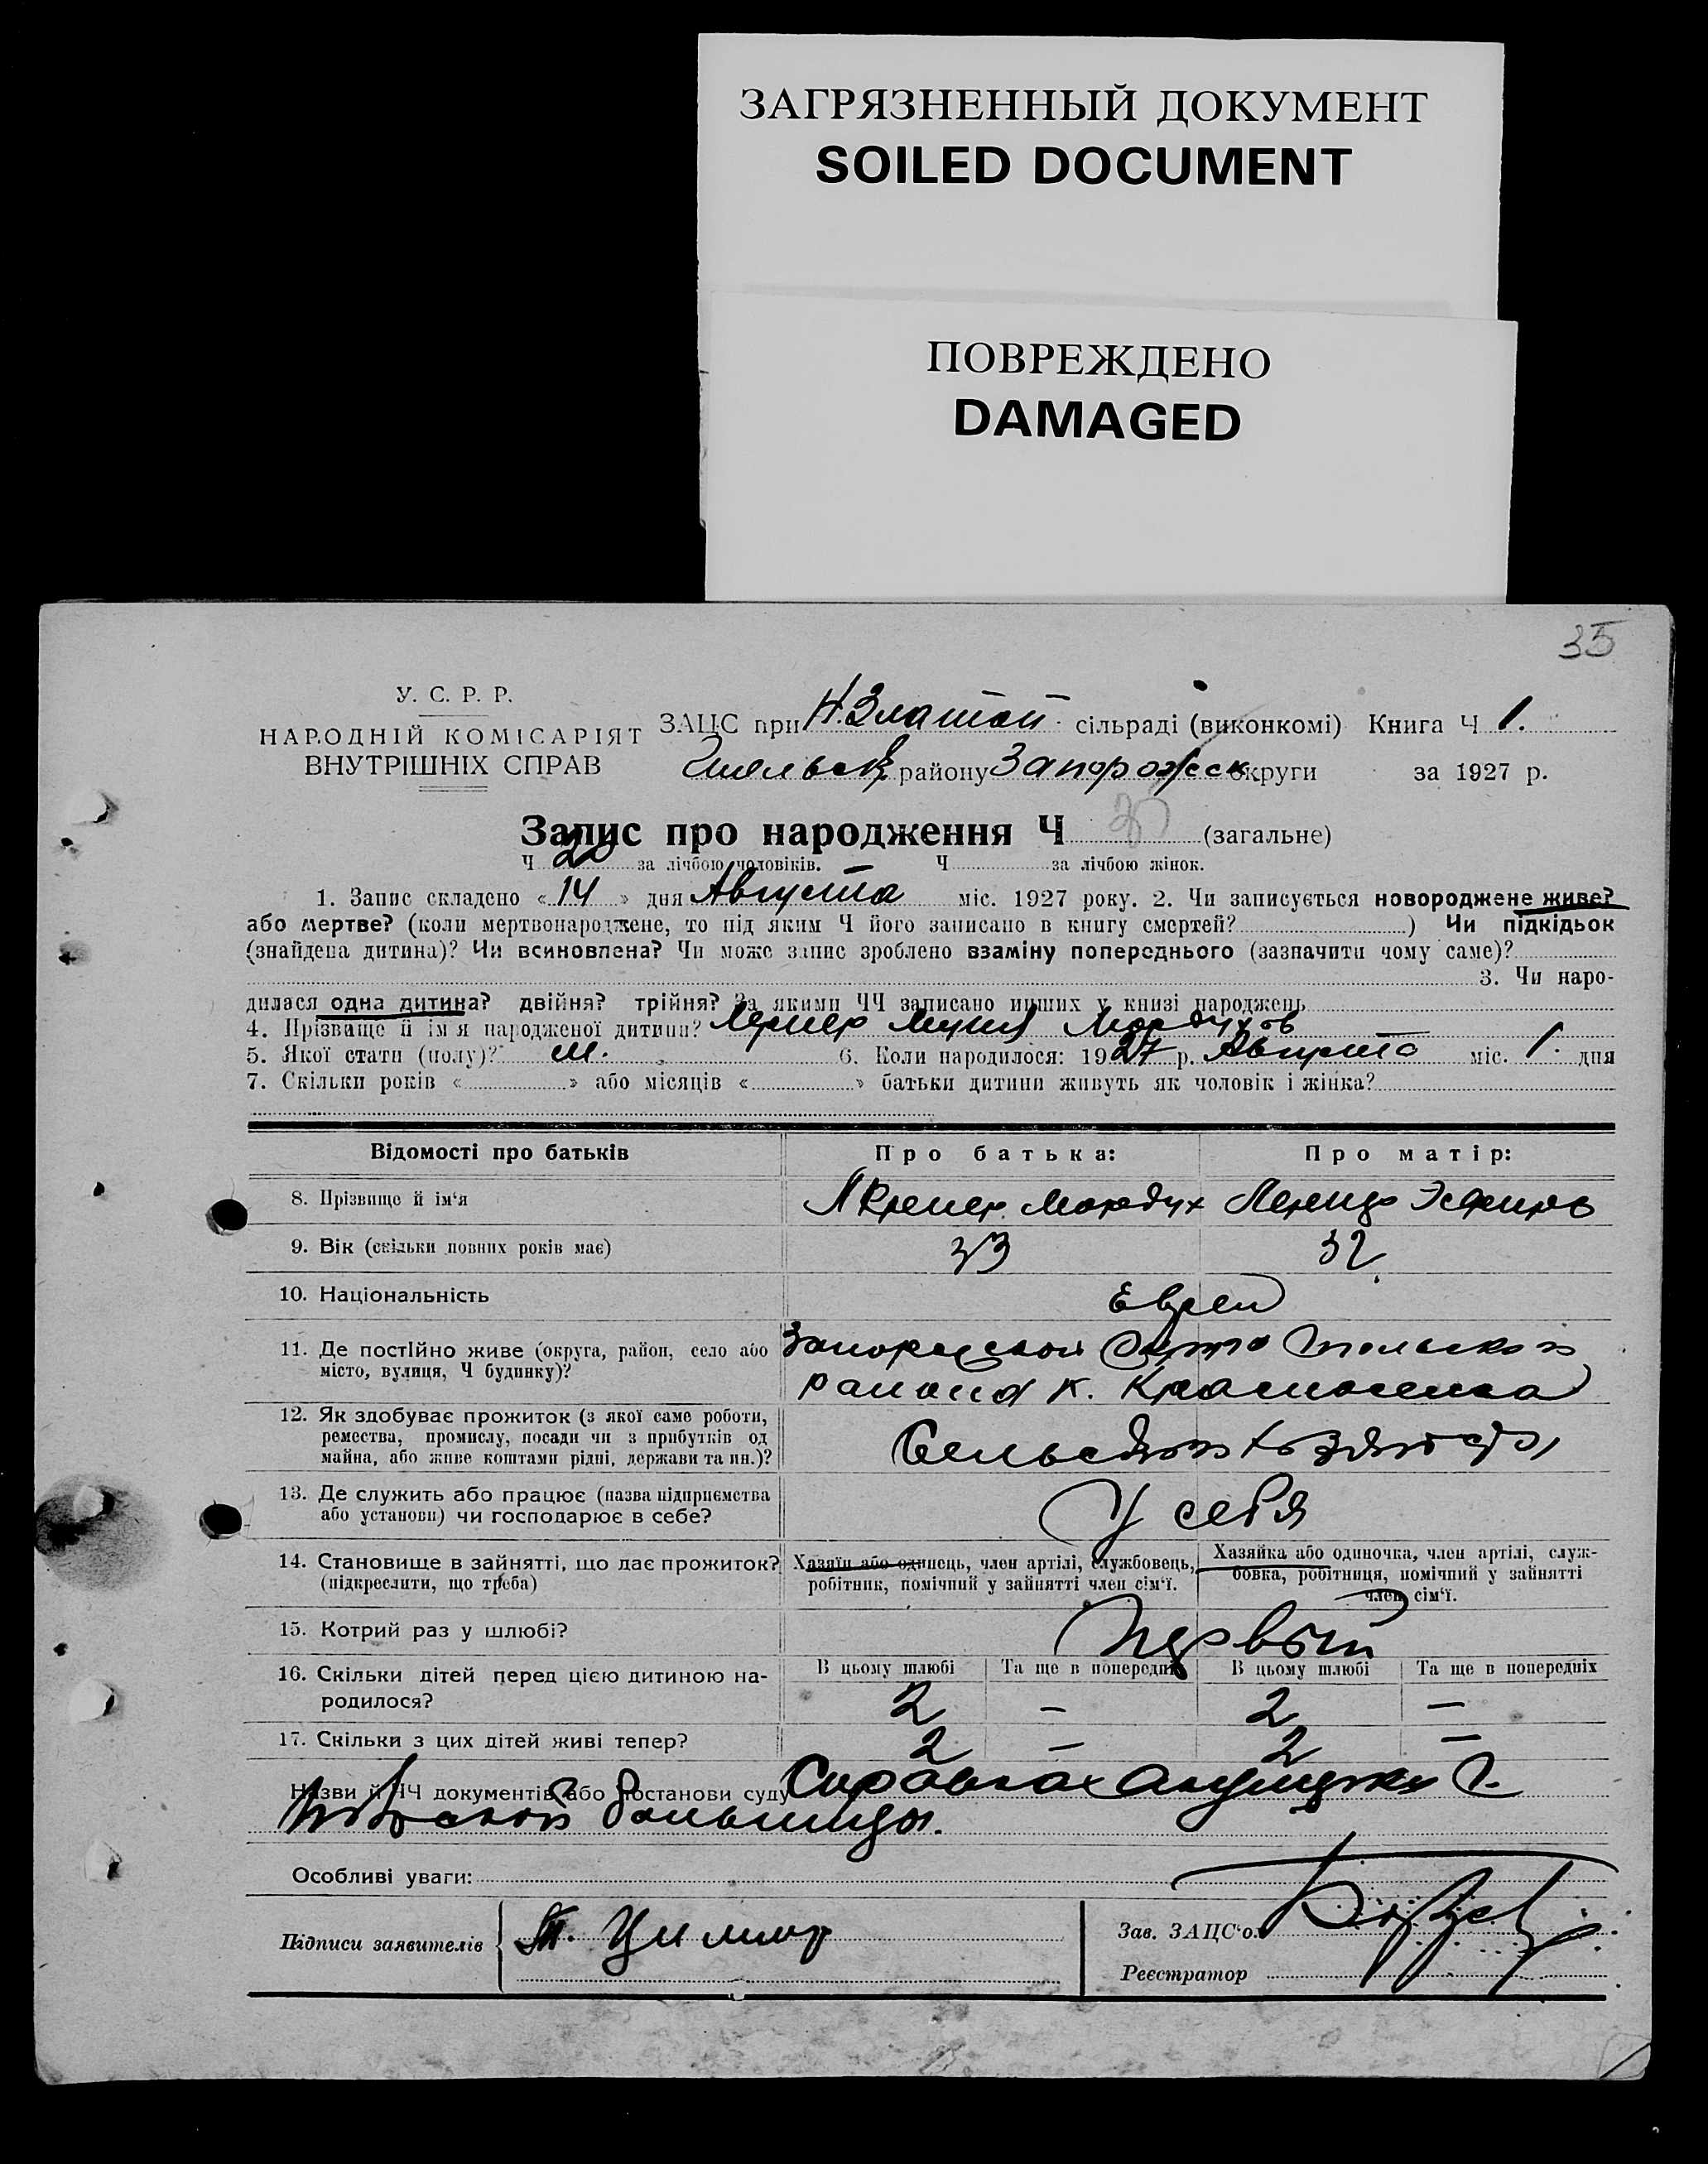 ЗАГРЯЗНЕННЫЙ ДОКУМЕНТ
SOILED DOCUMENT
ПОВРЕЖДЕНО
DAMAGED
35
У. С. Р. Р.
НАРОДНІЙ КОМІСАРІЯТ
ВНУТРІШНІХ СПРАВ
ЗАЦС при Н. Златоп. сільраді (виконкомі) Книга Ч 1.
району Запорожск округи за 1927 р.
Запис про народження Ч (загальне)
Ч 20 за лічбою чоловіків. Ч за лічбою жінок.
1. Запис складено « 14 » дня Августа міс. 1927 року. 2. Чи записується новороджене живе?
або мертве? (коли мертвонароджене, то під яким Ч його записано в книгу смертей? ) Чи підкідьок
(знайдена дитина)? Чи всиновлена? Чи може запис зроблено взаміну попереднього (зазначити чому саме)?
3. Чи наро-
дилася одна дитина? двійня? трійня? За якими ЧЧ записано инших у книзі народжень
4. Прізвище й ім'я народженої дитини? Мордухов
5. Якої стати (полу)? м. 6. Коли народилося: 1927 р. Августа міс. 1. дня
7. Скільки років « » або місяців « » батьки дитини живуть як чоловік і жінка?
Відомості про батьків Про батька: Про матір:
8. Прізвище й ім‘я Мордух Эсфирь
9. Вік (скільки повних років має) 33 32
10. Національність Евреи
11. Де постійно живе (округа, район, село або
місто, вулиця, Ч будинку)?
района к.
12. Як здобуває прожиток (з якої саме роботи,
ремества, промислу, посади чи з прибутків од
майна, або живе коштами рідні, держави та ин.)?
13. Де служить або працює (назва підприємства
або установи) чи господарює в себе? У себя
14. Становище в зайнятті, що дає прожиток?
(підкреслити, що треба)
Хазяїн або одинець, член артілі, службовець,
робітник, помічний у зайнятті член сім‘ї.
Хазяйка або одиночка, член артілі, служ-
бовка, робітниця, помічний у зайнятті
член сім‘ї.
15. Котрий раз у шлюбі? Первый
В цьому шлюбі Та ще в попередніх В цьому шлюбі Та ще в попередніх
16. Скільки дітей перед цією дитиною на-
родилося? 2 — 2 —
17. Скільки з цих дітей живі тепер? 2 — 2 —
Назви й ЧЧ документів або постанови суду Справка
больницы.
Особливі уваги:
Підписи заявителів
Зав. ЗАЦС‘ом
Реєстратор